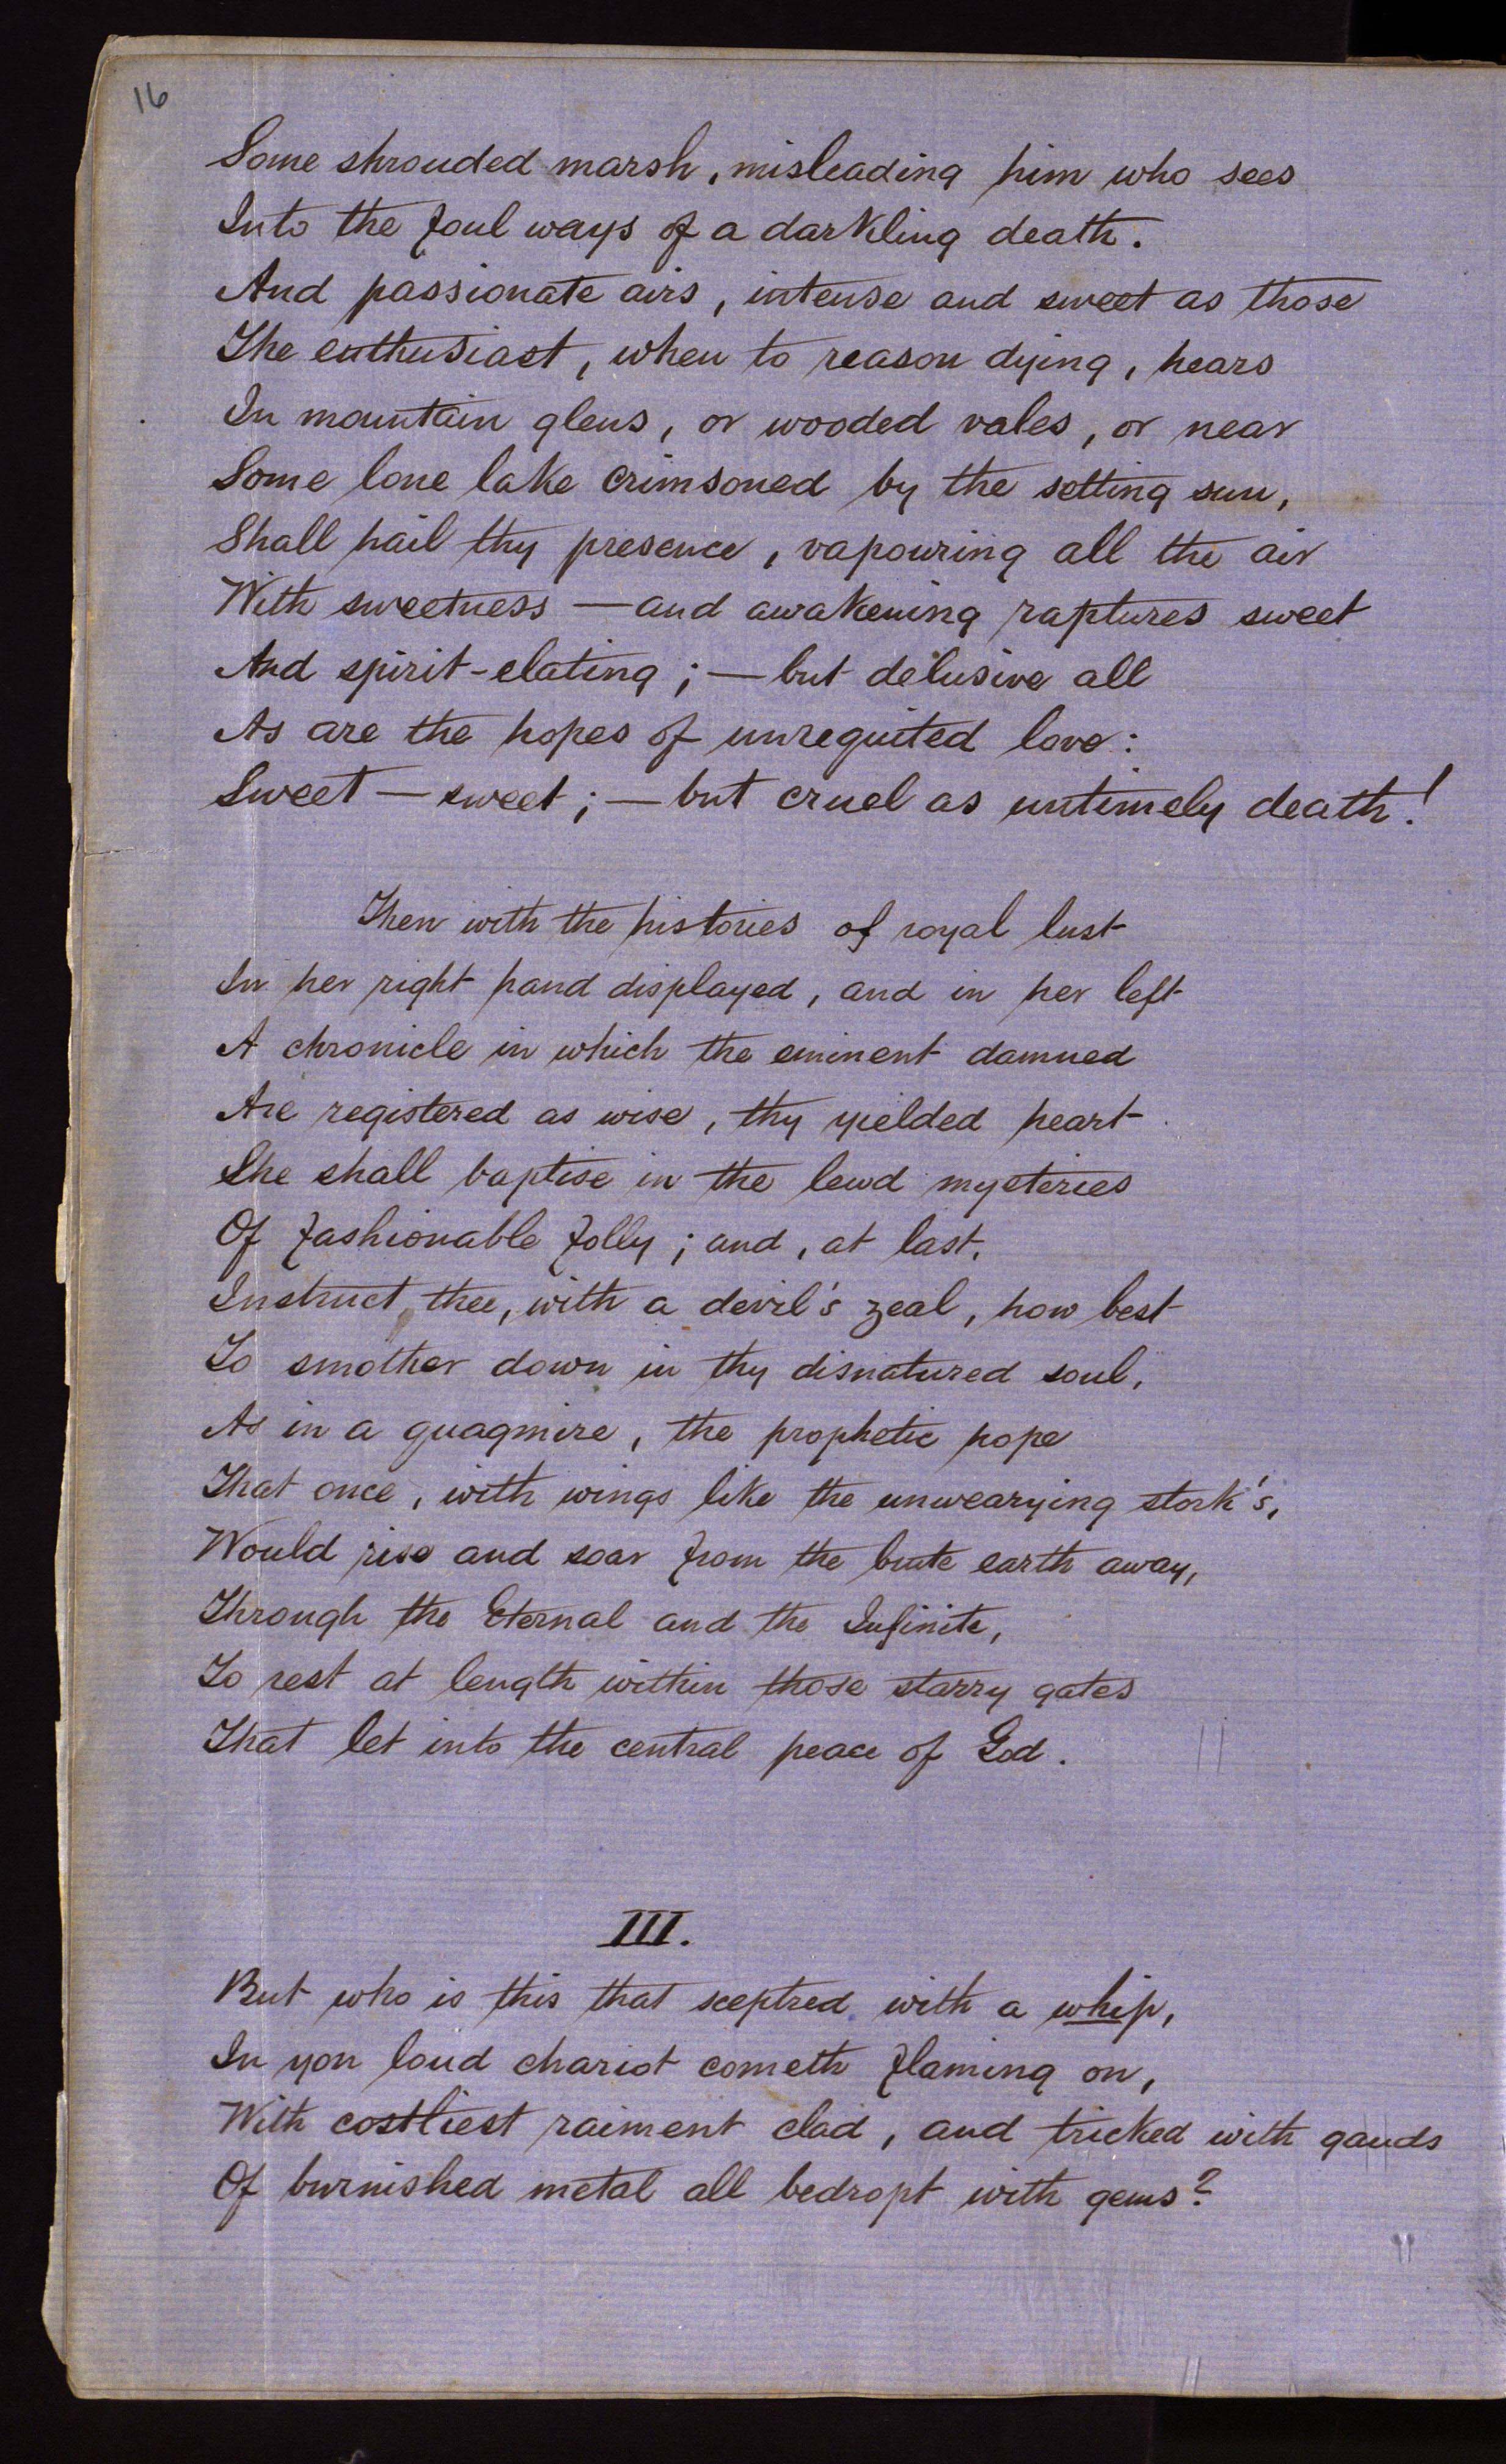 16
Some shrouded marsh, misleading him who sees
Into the foul ways of a darkling death.
And passionate airs, intense and sweet as those
The enthusiast, when to reason dying, hears
In mountain glens, or wooded vales, or near
Some lone lake crimsoned by the setting sun,
Shall hail thy presence, vapouring all the air
With sweetness — and awakening raptures sweet
And spirit-elating; — but delusive all
As are the hopes of unrequited love:
Sweet — sweet; — but cruel as untimely death!
Then with the histories of royal lust
In her right hand displayed, and in her left
A chronicle in which the eminent damned
Are registered as wise, thy yielded heart
She shall baptise in the lewd mysteries
Of fashionable folly; and, at last,
Instruct, thee, with a devil's zeal, how best
To smother down in thy disnatured soul,
As in a quagmire, the prophetic hope
That once, with wings like the unwearying stork's,
Would rise and soar from the brute earth away,
Through the Eternal and the Infinite,
To rest at length within those starry gates
That let into the central peace of God.
III.
But who is this that sceptred with a whip,
In yon loud chariot cometh flaming on,
With costliest raiment clad, and tricked with gauds
Of burnished metal all bedropt with gems?